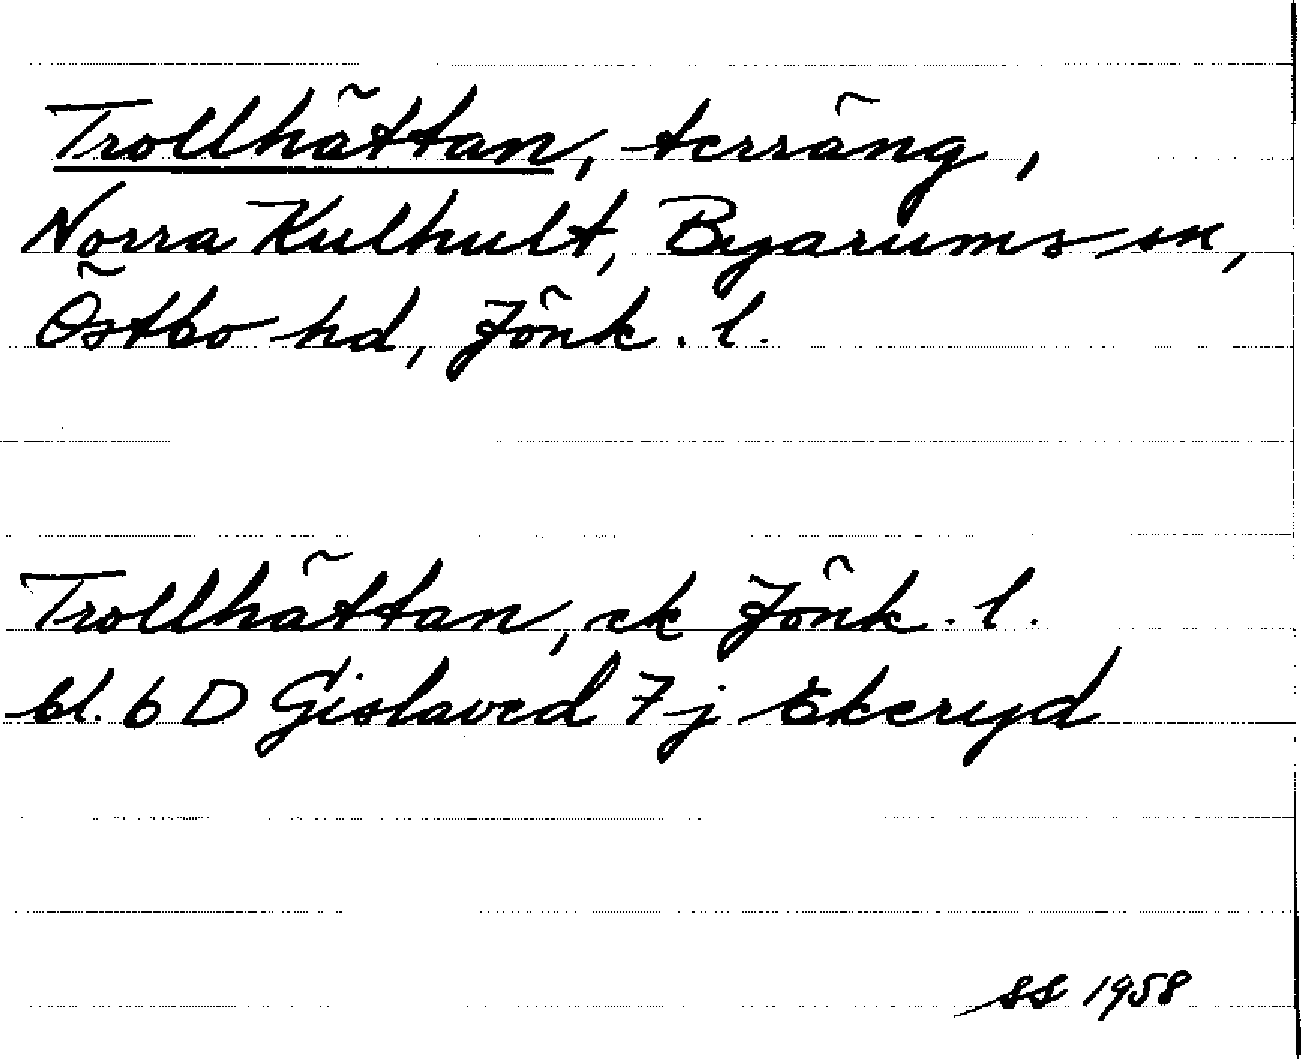 Trollhättan, terräng,
Norra Kulhult, Byarums sn,
Östbo hd, Jönk. l.
Trollhättan, ek Jönk. l.
bl. 6 D Gislaved 7 j Ekeryd
SS 1958